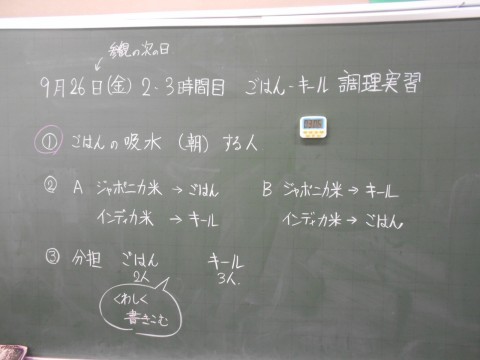 参観の次の日
9月26日(金) 2-3時間目 ごはん-キール 調理実習
① ごはんの吸水 (朝) する人
② A ジャポニカ米 → ごはん B ジャポニカ米 → キール
インディカ米 → キール インディカ米 → ごはん
③ 分担 ごはん キール
2人 3人.
くわしく
書きこむ